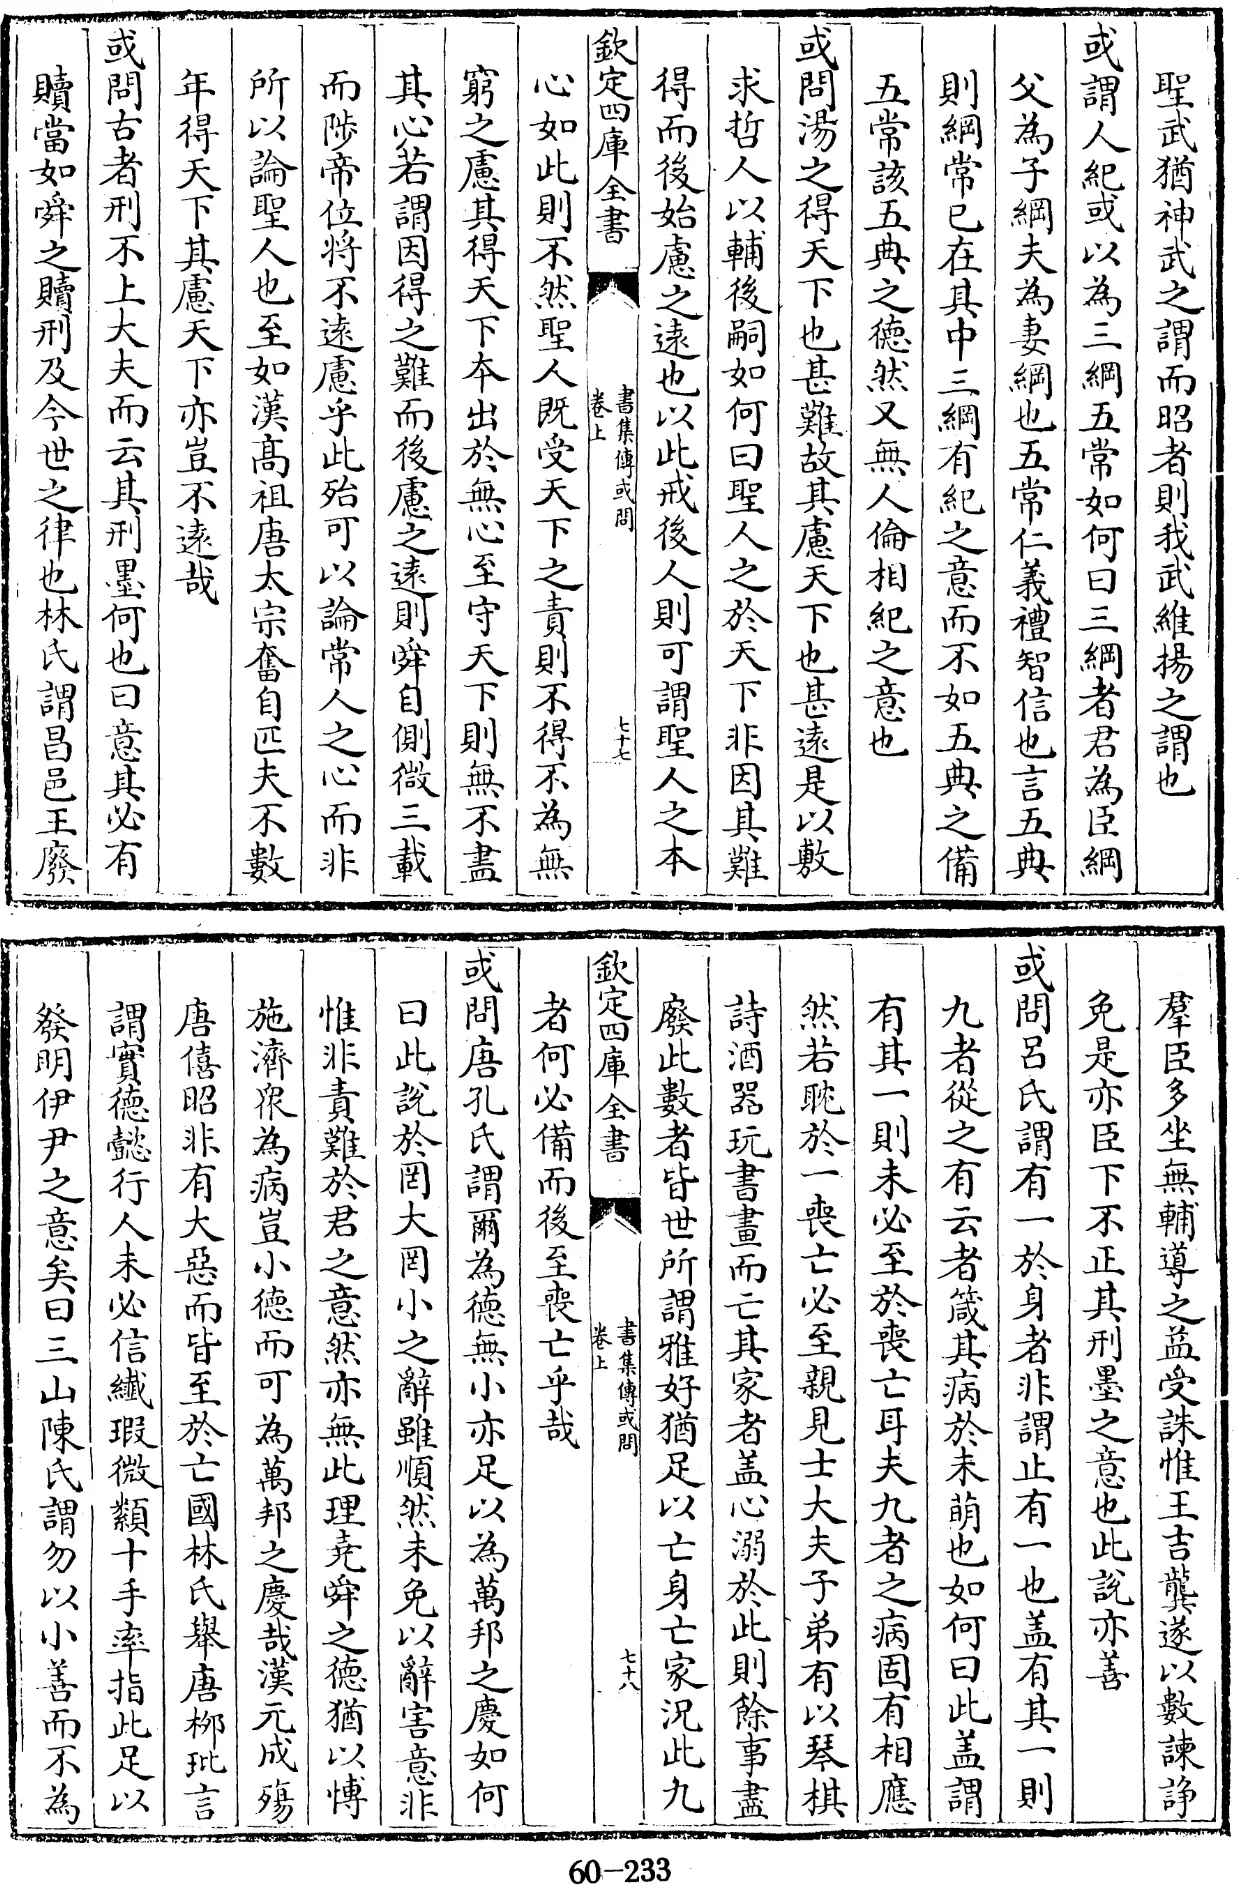 聖武猶神武之謂而昭者則我武維揚之謂也
或謂人紀或以為三綱五常如何曰三綱者君為臣綱
父為子綱夫為妻綱也五常仁義禮智信也言五典
則綱常已在其中三綱有紀之意而不如五典之備
五常該五典之德然又無人倫相紀之意也
或問湯之得天下也甚難故其慮天下也甚遠是以敷
求哲人以輔後嗣如何曰聖人之於天下非因其難
得而後始慮之遠也以此戒後人則可謂聖人之本
欽定四庫全書
書集傳或問
卷上
七十七
心如此則不然聖人既受天下之責則不得不為無
窮之慮其得天下本出於無心至守天下則無不盡
其心若謂因得之難而後慮之遠則舜自側微三載
而陟帝位將不遠慮乎此殆可以論常人之心而非
所以論聖人也至如漢髙祖唐太宗奮自匹夫不數
年得天下其慮天下亦豈不遠哉
或問古者刑不上大夫而云其刑墨何也曰意其必有
贖當如舜之贖刑及今世之律也林氏謂昌邑王廢
羣臣多坐無輔導之益受誅惟王吉龔遂以數諫諍
免是亦臣下不正其刑墨之意也此說亦善
或問呂氏謂有一於身者非謂止有一也盖有其一則
九者從之有云者箴其病於未萌也如何曰此盖謂
有其一則未必至於喪亡耳夫九者之病固有相應
然若耽於一喪亡必至親見士大夫子弟有以琴棋
詩酒器玩書畫而亡其家者盖心溺於此則餘事盡
廢此數者皆世所謂雅好猶足以亡身亡家況此九
欽定四庫全書
書集傳或問
卷上
七十八
者何必備而後至喪亡乎哉
或問唐孔氏謂爾為德無小亦足以為萬邦之慶如何
曰此說於罔大罔小之辭雖順然未免以辭害意非
惟非責難於君之意然亦無此理堯舜之德猶以愽
施濟眾為病豈小德而可為萬邦之慶哉漢元成殤
唐僖昭非有大惡而皆至於亡國林氏舉唐栁玭言
謂實德懿行人未必信纎瑕微纇十手率指此足以
發明伊尹之意矣曰三山陳氏謂勿以小善而不為
60-233